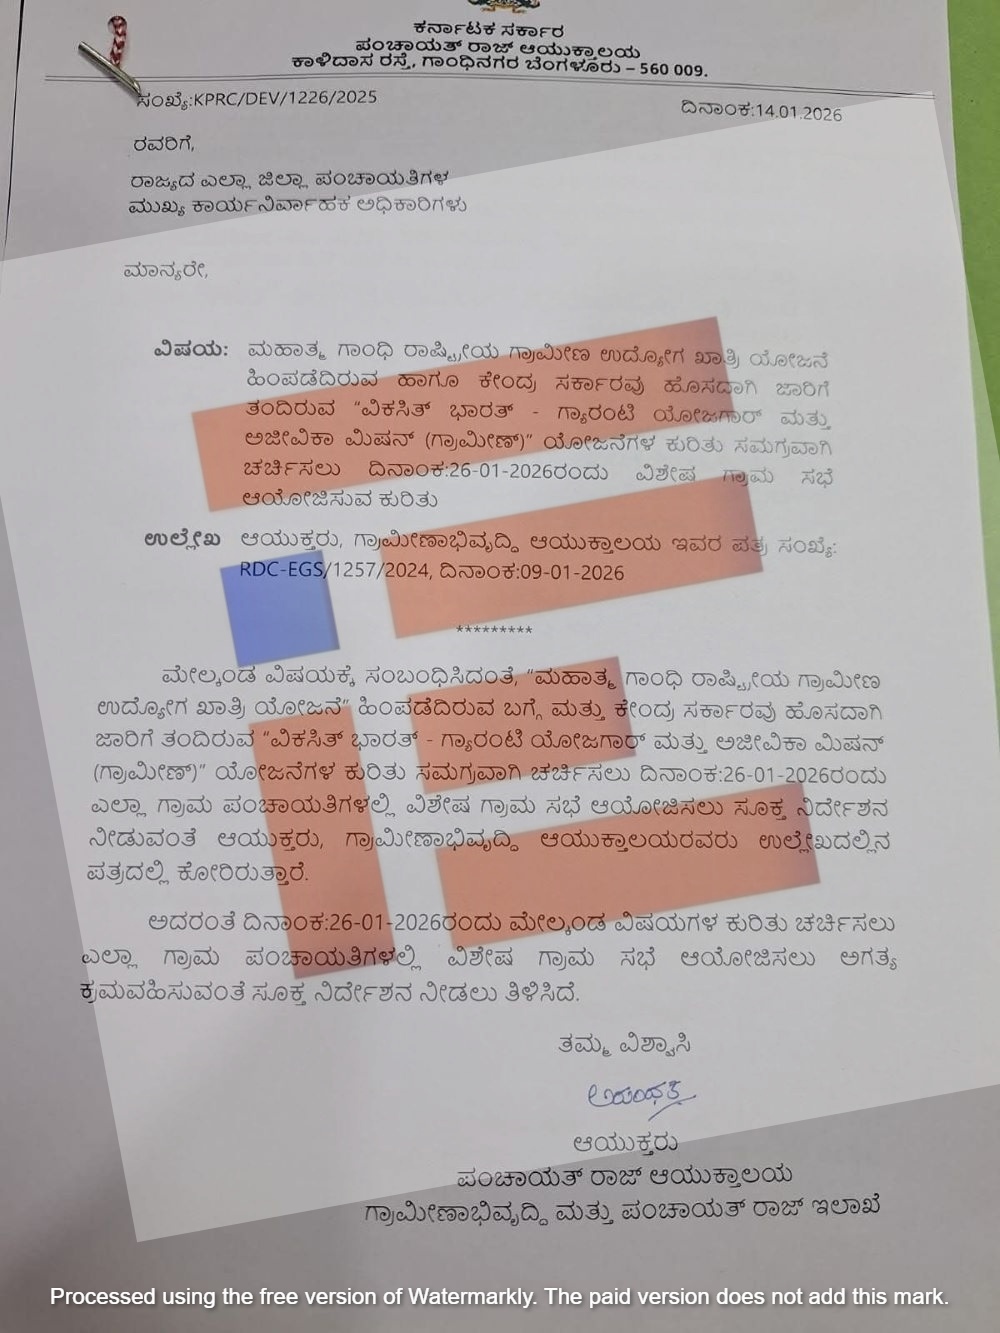 ಕರ್ನಾಟಕ ಸರ್ಕಾರ
ಪಂಚಾಯತ್ ರಾಜ್ ಆಯುಕ್ತಾಲಯ
ಕಾಳಿದಾಸ ರಸ್ತೆ, ಗಾಂಧಿನಗರ ಬೆಂಗಳೂರು – 560 009.
ಸಂಖ್ಯೆ:KPRC/DEV/1226/2025 ದಿನಾಂಕ:14.01.2026
ರವರಿಗೆ,
ರಾಜ್ಯದ ಎಲ್ಲಾ ಜಿಲ್ಲಾ ಪಂಚಾಯತಿಗಳ
ಮುಖ್ಯ ಕಾರ್ಯನಿರ್ವಾಹಕ ಅಧಿಕಾರಿಗಳು
ಮಾನ್ಯರೇ,
ವಿಷಯ: ಮಹಾತ್ಮ ಗಾಂಧಿ ರಾಷ್ಟ್ರೀಯ ಗ್ರಾಮೀಣ ಉದ್ಯೋಗ ಖಾತ್ರಿ ಯೋಜನೆ
ಹಿಂಪಡೆದಿರುವ ಹಾಗೂ ಕೇಂದ್ರ ಸರ್ಕಾರವು ಹೊಸದಾಗಿ ಜಾರಿಗೆ
ತಂದಿರುವ "ವಿಕಸಿತ್ ಭಾರತ್ - ಗ್ಯಾರಂಟಿ ಯೋಜಗಾರ್ ಮತ್ತು
ಅಜೀವಿಕಾ ಮಿಷನ್ (ಗ್ರಾಮೀಣ್)" ಯೋಜನೆಗಳ ಕುರಿತು ಸಮಗ್ರವಾಗಿ
ಚರ್ಚಿಸಲು ದಿನಾಂಕ:26-01-2026ರಂದು ವಿಶೇಷ ಗ್ರಾಮ ಸಭೆ
ಆಯೋಜಿಸುವ ಕುರಿತು
ಉಲ್ಲೇಖ ಆಯುಕ್ತರು, ಗ್ರಾಮೀಣಾಭಿವೃದ್ಧಿ ಆಯುಕ್ತಾಲಯ ಇವರ ಪತ್ರ ಸಂಖ್ಯೆ:
RDC-EGS/1257/2024, ದಿನಾಂಕ:09-01-2026
*********
ಮೇಲ್ಕಂಡ ವಿಷಯಕ್ಕೆ ಸಂಬಂಧಿಸಿದಂತೆ, "ಮಹಾತ್ಮ ಗಾಂಧಿ ರಾಷ್ಟ್ರೀಯ ಗ್ರಾಮೀಣ
ಉದ್ಯೋಗ ಖಾತ್ರಿ ಯೋಜನೆ" ಹಿಂಪಡೆದಿರುವ ಬಗ್ಗೆ ಮತ್ತು ಕೇಂದ್ರ ಸರ್ಕಾರವು ಹೊಸದಾಗಿ
ಜಾರಿಗೆ ತಂದಿರುವ "ವಿಕಸಿತ್ ಭಾರತ್ - ಗ್ಯಾರಂಟಿ ಯೋಜಗಾರ್ ಮತ್ತು ಅಜೀವಿಕಾ ಮಿಷನ್
(ಗ್ರಾಮೀಣ್)" ಯೋಜನೆಗಳ ಕುರಿತು ಸಮಗ್ರವಾಗಿ ಚರ್ಚಿಸಲು ದಿನಾಂಕ:26-01-2026ರಂದು
ಎಲ್ಲಾ ಗ್ರಾಮ ಪಂಚಾಯತಿಗಳಲ್ಲಿ ವಿಶೇಷ ಗ್ರಾಮ ಸಭೆ ಆಯೋಜಿಸಲು ಸೂಕ್ತ ನಿರ್ದೇಶನ
ನೀಡುವಂತೆ ಆಯುಕ್ತರು, ಗ್ರಾಮೀಣಾಭಿವೃದ್ಧಿ ಆಯುಕ್ತಾಲಯರವರು ಉಲ್ಲೇಖದಲ್ಲಿನ
ಪತ್ರದಲ್ಲಿ ಕೋರಿರುತ್ತಾರೆ.
ಅದರಂತೆ ದಿನಾಂಕ:26-01-2026ರಂದು ಮೇಲ್ಕಂಡ ವಿಷಯಗಳ ಕುರಿತು ಚರ್ಚಿಸಲು
ಎಲ್ಲಾ ಗ್ರಾಮ ಪಂಚಾಯತಿಗಳಲ್ಲಿ ವಿಶೇಷ ಗ್ರಾಮ ಸಭೆ ಆಯೋಜಿಸಲು ಅಗತ್ಯ
ಕ್ರಮವಹಿಸುವಂತೆ ಸೂಕ್ತ ನಿರ್ದೇಶನ ನೀಡಲು ತಿಳಿಸಿದೆ.
ತಮ್ಮ ವಿಶ್ವಾಸಿ
ಆಯುಕ್ತರು
ಪಂಚಾಯತ್ ರಾಜ್ ಆಯುಕ್ತಾಲಯ
ಗ್ರಾಮೀಣಾಭಿವೃದ್ಧಿ ಮತ್ತು ಪಂಚಾಯತ್ ರಾಜ್ ಇಲಾಖೆ
Processed using the free version of Watermarkly. The paid version does not add this mark.